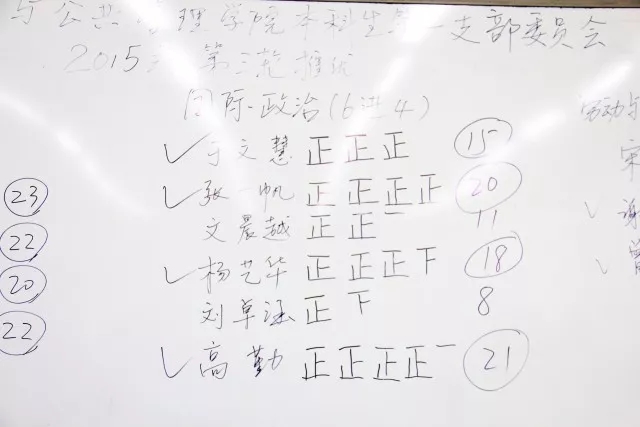 与公共管理学院本科生第一支部委员会
2015 第三轮推优
国际政治(6进4)
✓于文慧 正正正 15
✓张一帆 正正正正 20
文晨越 正正一 11
✓杨艺华 正正正下 18
刘卓涵 正下 8
✓高勤 正正正正一 21
23
22
20
22
劳动与
宋
✓谢
✓曾